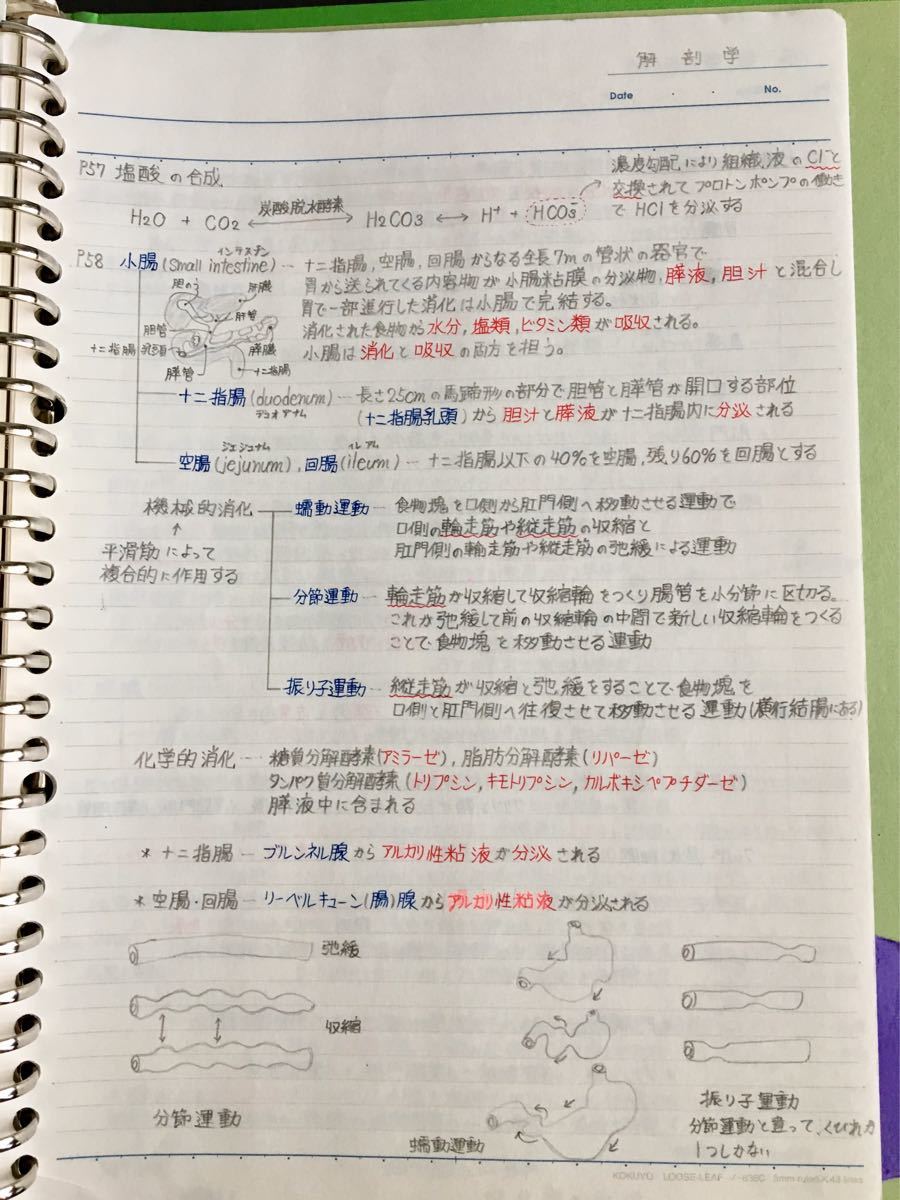 解剖学
Date ・ ・ No.
P57 塩酸の合成
濃度勾配により組織液のCl⁻と
交換されてプロトンポンプの働き
でHClを分泌する
炭酸脱水酵素
H2O + CO2 ⟷ H2CO3 ⟷ H⁺ + HCO3⁻
P58 小腸(Small intestine)‥十二指腸,空腸,回腸からなる全長7mの管状の器官で
インテスチン
胃から送られてくる内容物が小腸粘膜の分泌物,膵液,胆汁と混合し
胃で一部進行した消化は小腸で完結する。
消化された食物から水分,塩類,ビタミン類が吸収される。
小腸は消化と吸収の両方を担う。
胆のう
肝臓
肝管
胆管
十二指腸乳頭
膵臓
膵管
十二指腸
十二指腸(duodenum)―長さ25cmの馬蹄形の部分で胆管と膵管が開口する部位
デュオデナム
(十二指腸乳頭)から胆汁と膵液が十二指腸内に分泌される
ジェジュナム イレアム
空腸(jejunum),回腸(ileum)―十二指腸以下の40%を空腸,残り60%を回腸とする
機械的消化
平滑筋によって
複合的に作用する
蠕動運動―食物塊を口側から肛門側へ移動させる運動で
口側の輪走筋や縦走筋の収縮と
肛門側の輪走筋や縦走筋の弛緩による運動
分節運動―輪走筋が収縮して収縮輪をつくり腸管を小分節に区切る。
これが弛緩して前の収縮輪の中間で新しい収縮輪をつくる
ことで食物塊を移動させる運動
振り子運動―縦走筋が収縮と弛緩をすることで食物塊を
口側と肛門側へ往復させて移動させる運動(横行結腸にある)
化学的消化‥糖質分解酵素(アミラーゼ),脂肪分解酵素(リパーゼ)
タンパク質分解酵素(トリプシン,キモトリプシン,カルボキシペプチダーゼ)
膵液中に含まれる
* 十二指腸―ブルンネル腺からアルカリ性粘液が分泌される
* 空腸・回腸―リーベルキューン(腸)腺からアルカリ性粘液が分泌される
弛緩
収縮
分節運動
蠕動運動
振り子運動
分節運動と違って、くびれが
1つしかない
KOKUYO LOOSE-LEAF